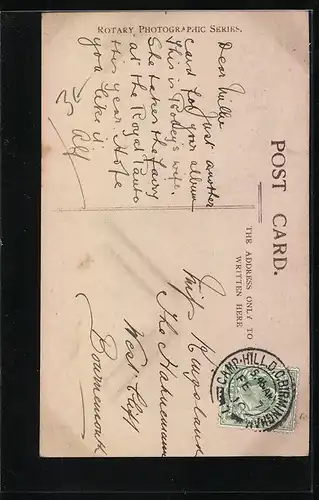 ROTARY PHOTOGRAPHIC SERIES.
POST CARD.
THE ADDRESS ONLY TO
WRITTEN HERE
Dear Millie
Just another
card for your album
This is Robey's wife.
She takes the Fairy
at the Royal Panto
this year. Hope
you like it
Alf
Miss Kingsland
The
West Cliff
Bournemouth
CAMP-HILL.D.O. BIRMINGHAM